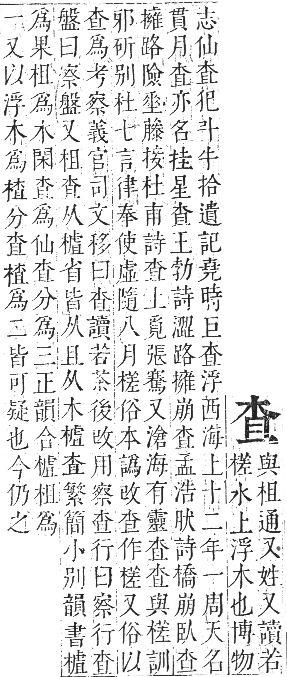 查
與柤通又姓又讀若
槎水上浮木也博物
志仙查犯斗牛拾遺記堯時巨查浮西海上十二年一周天名
貫月查亦名挂星查王勃詩澀路擁崩查孟浩肰詩橋崩臥查
擁路險埀藤接杜甫詩查上覓張騫又滄海有靈查查與槎訓
邪斫别杜七言律奉使虛隨八月槎俗本譌改查作槎又俗以
查爲考察義官司文移曰查讀若茶後改用察查行曰察行查
盤曰察盤又柤查从樝省皆从且从木樝查繁簡小别韻書樝
爲果柤爲木閑查爲仙查分爲三正韻合樝柤爲
一又以浮木爲楂分查楂爲二皆可疑也今仍之